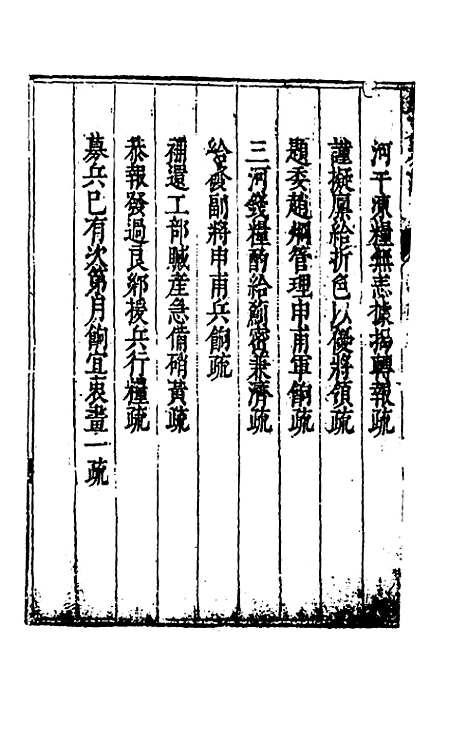 河干凍糧無恙據揭轉報疏
謹擬原給折色以優將領疏
題委趙炯管理申甫軍餉疏
三河錢糧酌給薊密兼濟疏
給發副將申甫兵餉疏
補還工部贓產急備硝黃疏
恭報發過良鄉援兵行糧疏
募兵已有次第月餉宜畫一疏